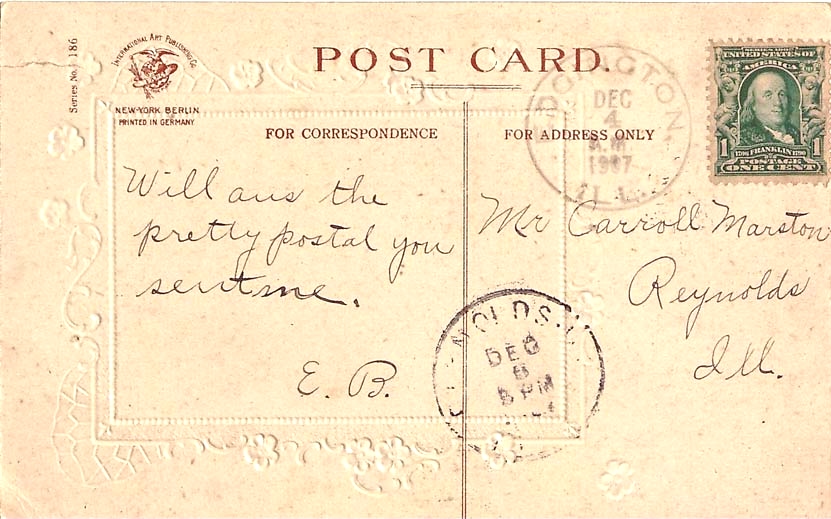 Series No. 186
INTERNATIONAL ART PUBLISHING CO.
NEW-YORK BERLIN
PRINTED IN GERMANY
POST CARD.
FOR CORRESPONDENCE
FOR ADDRESS ONLY
DEC
4
A.M
1907
ILL.
SERIES 1902
UNITED STATES OF
AMERICA
1706 FRANKLIN 1790
1 1
POSTAGE
ONE CENT
Will ans the
pretty postal you
sent me.
E. B.
Mr Carroll Marston
Reynolds
Ill.
DEC
PM